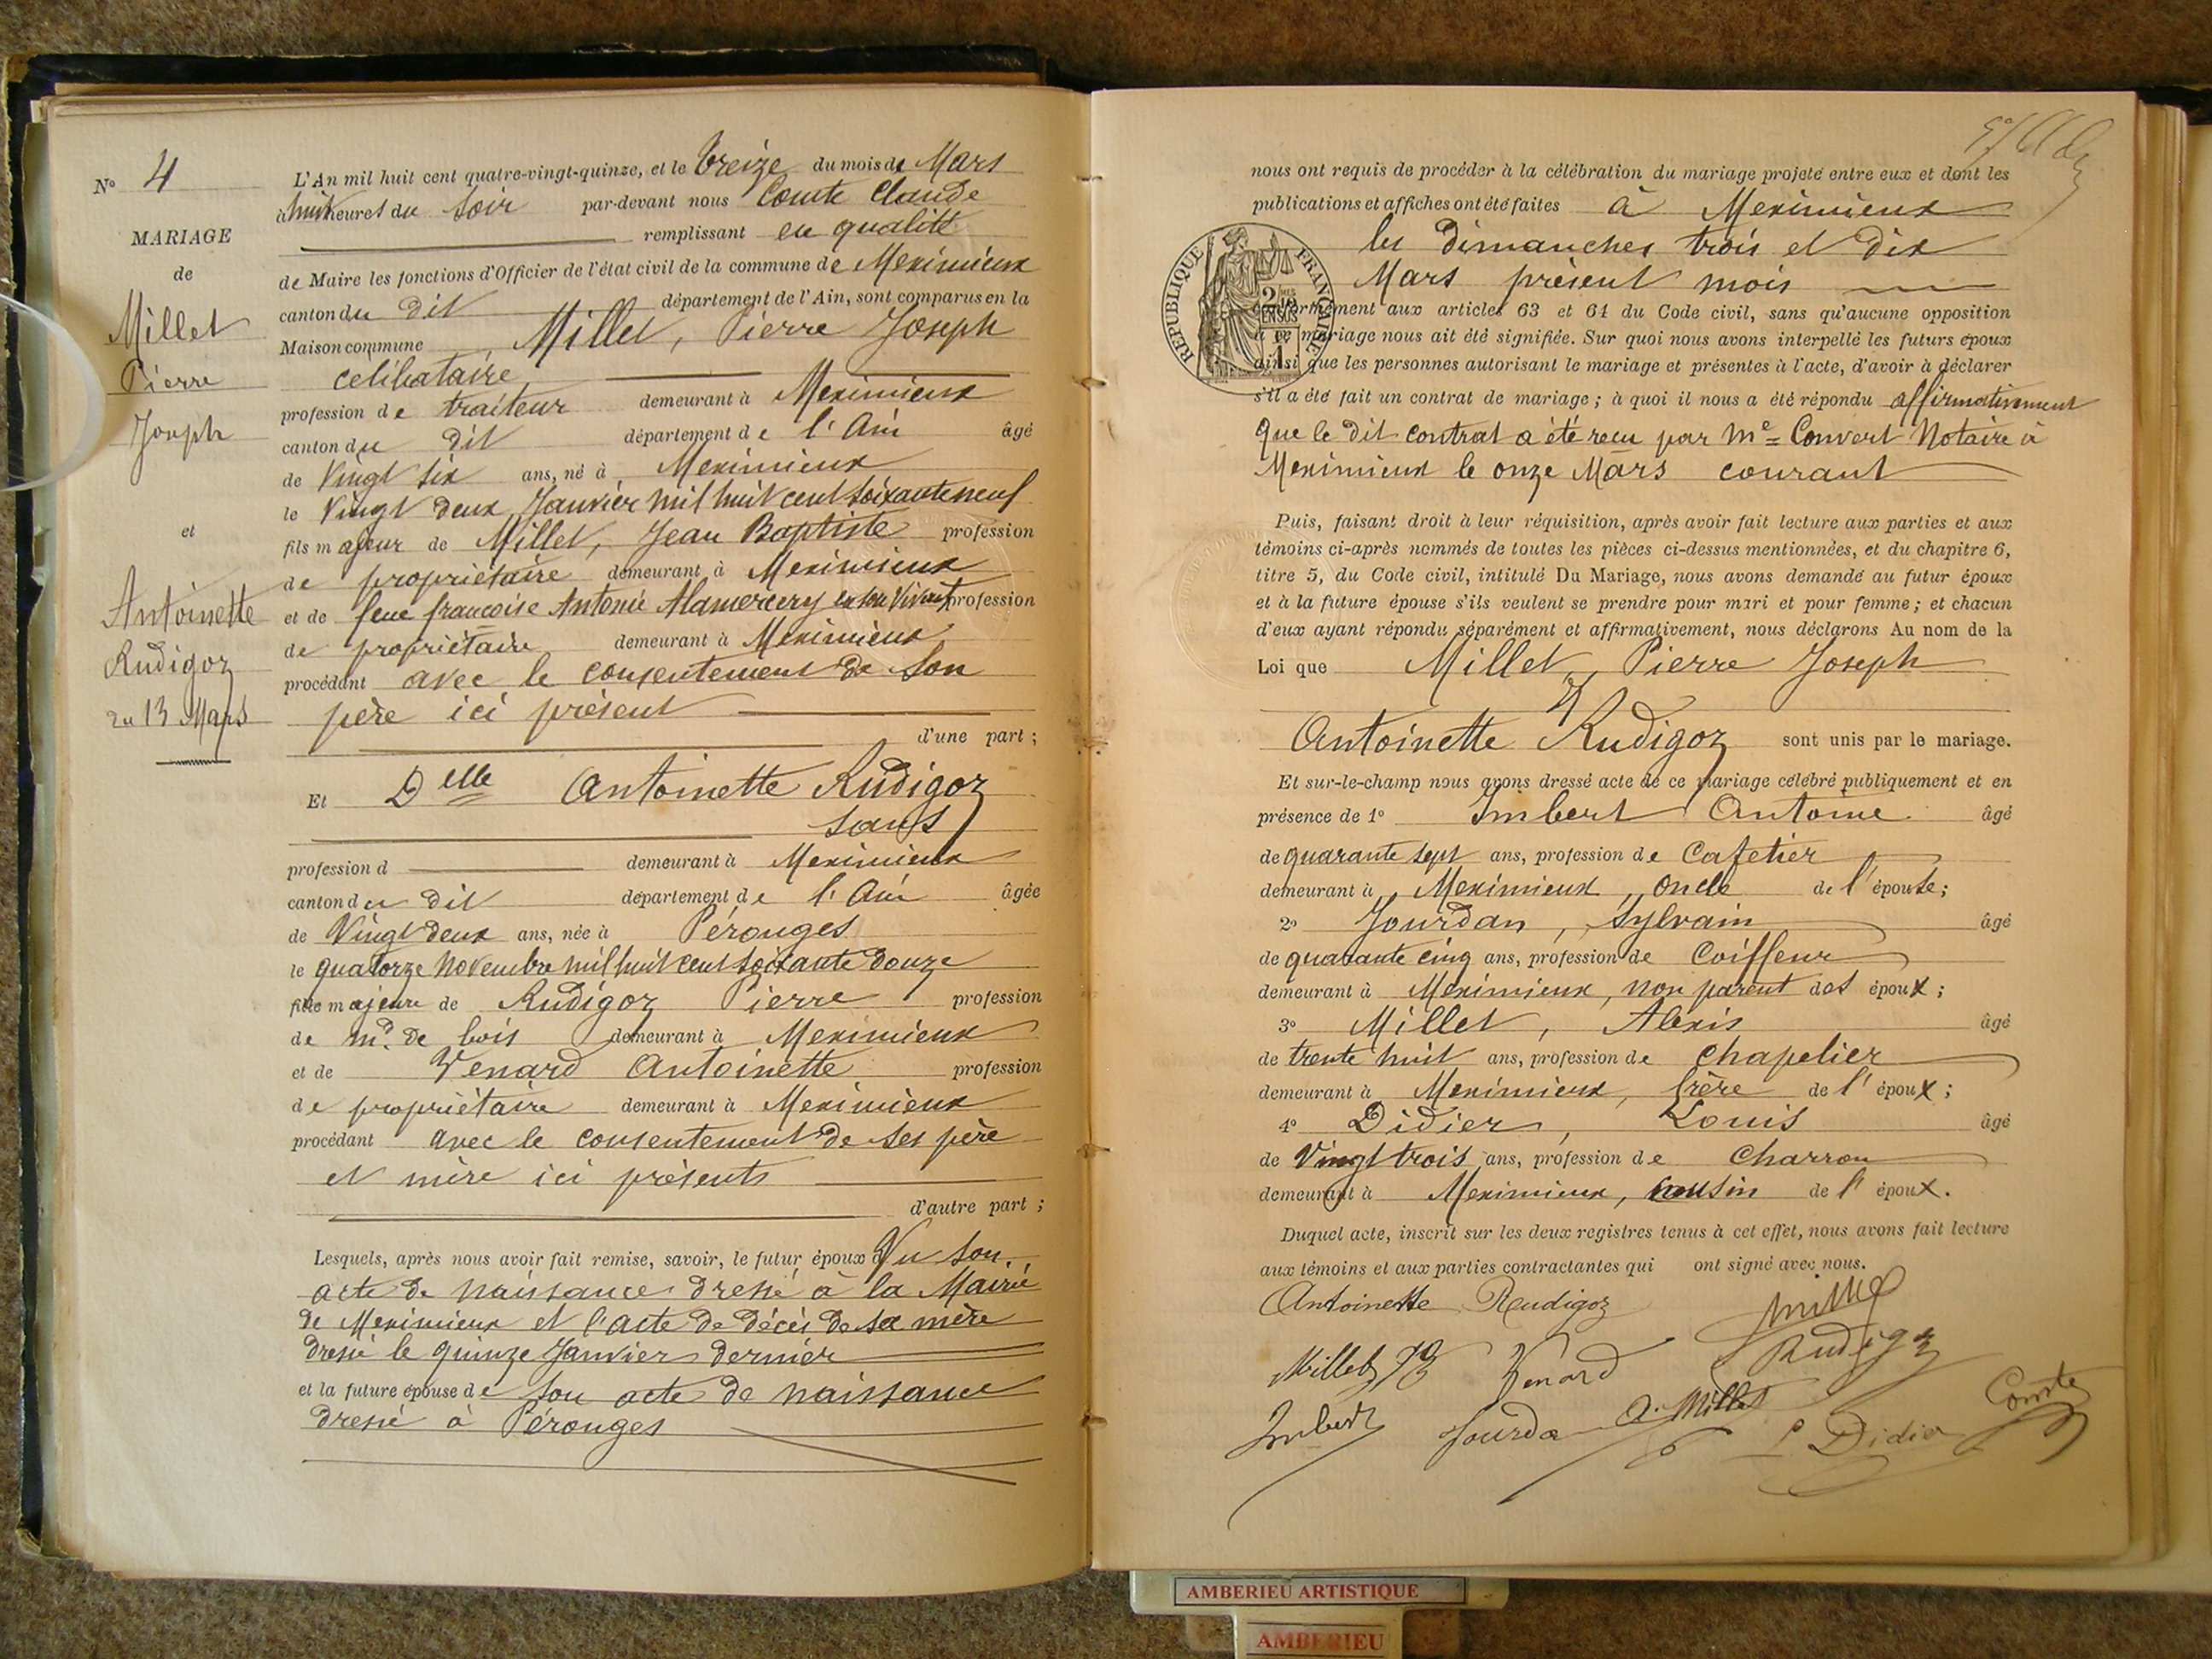 N° 4
MARIAGE
de
Millet
Pierre
Joseph
et
Antoinette
Rudigoz
du 13 Mars
L'An mil huit cent quatre-vingt-quinze, et le treize du mois de Mars
à huit heures du soir par-devant nous Comte Claude
remplissant en qualité
de Maire les fonctions d'Officier de l'état civil de la commune de Meximieux
canton du dit département de l'Ain, sont comparus en la
Maison commune Millet, Pierre Joseph
célibataire
profession de traiteur demeurant à Meximieux
canton du dit département de l'Ain âgé
de Vingt six ans, né à Meximieux
le Vingt deux Janvier mil huit cent soixante neuf
fils majeur de Millet, Jean Baptiste profession
de propriétaire demeurant à Meximieux
et de feue françoise Antonie Alamercery en son vivant profession
de propriétaire demeurant à Meximieux
procédant avec le consentement de son
père ici présent
d'une part ;
Et Delle Antoinette Rudigoz
sans
profession d demeurant à Meximieux
canton du dit département de l'Ain âgée
de Vingt deux ans, née à Pérouges
le quatorze Novembre mil huit cent soixante douze
fille majeure de Rudigoz Pierre profession
de md. de bois demeurant à Meximieux
et de Venard Antoinette profession
de propriétaire demeurant à Meximieux
procédant avec le consentement de ses père
et mère ici présents
d'autre part ;
Lesquels, après nous avoir fait remise, savoir, le futur époux Vu son
acte de naissance dressé à la Mairie
de Meximieux et l'acte de décès de sa mère
dressé le quinze Janvier dernier
et la future épouse de son acte de naissance
dressé à Pérouges
nous ont requis de procéder à la célébration du mariage projeté entre eux et dont les
publications et affiches ont été faites à Meximieux
les dimanches trois et dix
Mars présent mois
conformément aux articles 63 et 64 du Code civil, sans qu'aucune opposition
à ce mariage nous ait été signifiée. Sur quoi nous avons interpellé les futurs époux
ainsi que les personnes autorisant le mariage et présentes à l'acte, d'avoir à déclarer
s'il a été fait un contrat de mariage ; à quoi il nous a été répondu affirmativement
que le dit contrat a été reçu par Me Convert Notaire à
Meximieux le onze Mars courant
RÉPUBLIQUE FRANÇAISE
Puis, faisant droit à leur réquisition, après avoir fait lecture aux parties et aux
témoins ci-après nommés de toutes les pièces ci-dessus mentionnées, et du chapitre 6,
titre 5, du Code civil, intitulé Du Mariage, nous avons demandé au futur époux
et à la future épouse s'ils veulent se prendre pour mari et pour femme ; et chacun
d'eux ayant répondu séparément et affirmativement, nous déclarons Au nom de la
Loi que Millet, Pierre Joseph
&
Antoinette Rudigoz sont unis par le mariage.
Et sur-le-champ nous avons dressé acte de ce mariage célébré publiquement et en
présence de 1° Imbert Antoine âgé
de quarante sept ans, profession de Cafetier
demeurant à Meximieux, oncle de l'épouse ;
2° Jourdan, Sylvain âgé
de quarante cinq ans, profession de Coiffeur
demeurant à Meximieux, non parent des époux ;
3° Millet, Alexis âgé
de trente huit ans, profession de chapelier
demeurant à Meximieux, frère de l'époux ;
4° Didier, Louis âgé
de Vingt trois ans, profession de Charron
demeurant à Meximieux, cousin de l'époux.
Duquel acte, inscrit sur les deux registres tenus à cet effet, nous avons fait lecture
aux témoins et aux parties contractantes qui ont signé avec nous.
Antoinette Rudigoz Millet
Millet Venard Rudigoz
Imbert Jourdan A. Millet L Didier Comte
AMBERIEU ARTISTIQUE
AMBERIEU